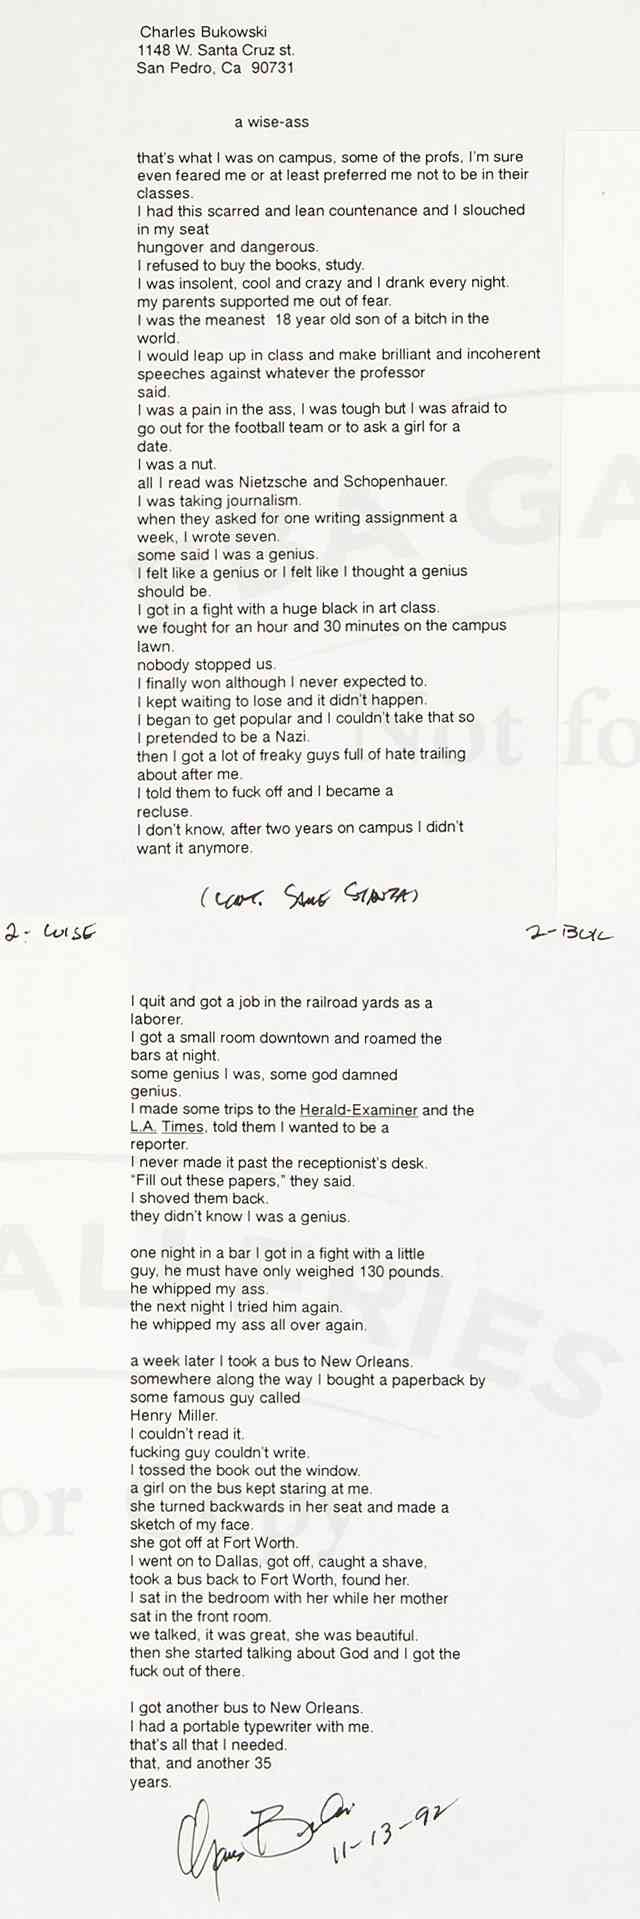 Charles Bukowski
1148 W. Santa Cruz st.
San Pedro, Ca 90731
a wise-ass
that's what I was on campus, some of the profs, I'm sure
even feared me or at least preferred me not to be in their
classes.
I had this scarred and lean countenance and I slouched
in my seat
hungover and dangerous.
I refused to buy the books, study.
I was insolent, cool and crazy and I drank every night.
my parents supported me out of fear.
I was the meanest 18 year old son of a bitch in the
world.
I would leap up in class and make brilliant and incoherent
speeches against whatever the professor
said.
I was a pain in the ass, I was tough but I was afraid to
go out for the football team or to ask a girl for a
date.
I was a nut.
all I read was Nietzsche and Schopenhauer.
I was taking journalism.
when they asked for one writing assignment a
week, I wrote seven.
some said I was a genius.
I felt like a genius or I felt like I thought a genius
should be.
I got in a fight with a huge black in art class.
we fought for an hour and 30 minutes on the campus
lawn.
nobody stopped us.
I finally won although I never expected to.
I kept waiting to lose and it didn't happen.
I began to get popular and I couldn't take that so
I pretended to be a Nazi.
then I got a lot of freaky guys full of hate trailing
about after me.
I told them to fuck off and I became a
recluse.
I don't know, after two years on campus I didn't
want it anymore.
(cont. SAME STANZA)
2- WISE
2-BUK
I quit and got a job in the railroad yards as a
laborer.
I got a small room downtown and roamed the
bars at night.
some genius I was, some god damned
genius.
I made some trips to the Herald-Examiner and the
L.A. Times, told them I wanted to be a
reporter.
I never made it past the receptionist's desk.
"Fill out these papers," they said.
I shoved them back.
they didn't know I was a genius.
one night in a bar I got in a fight with a little
guy, he must have only weighed 130 pounds.
he whipped my ass.
the next night I tried him again.
he whipped my ass all over again.
a week later I took a bus to New Orleans.
somewhere along the way I bought a paperback by
some famous guy called
Henry Miller.
I couldn't read it.
fucking guy couldn't write.
I tossed the book out the window.
a girl on the bus kept staring at me.
she turned backwards in her seat and made a
sketch of my face.
she got off at Fort Worth.
I went on to Dallas, got off, caught a shave,
took a bus back to Fort Worth, found her.
I sat in the bedroom with her while her mother
sat in the front room.
we talked, it was great, she was beautiful.
then she started talking about God and I got the
fuck out of there.
I got another bus to New Orleans.
I had a portable typewriter with me.
that's all that I needed.
that, and another 35
years.
11-13-92